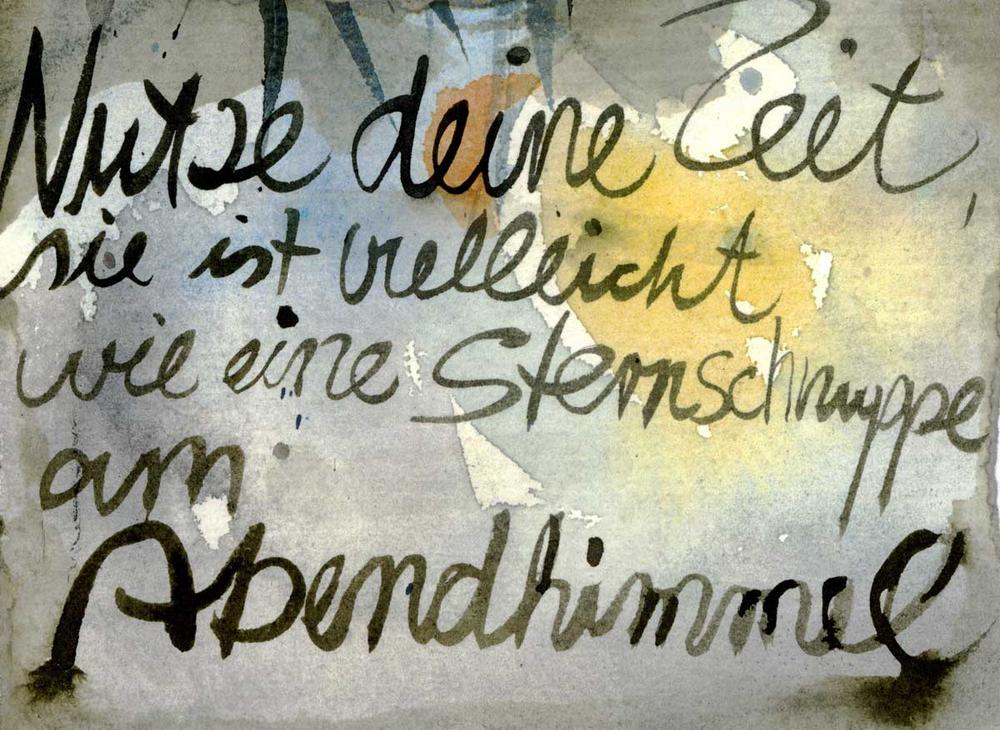 Nutze deine Zeit,
sie ist vielleicht
wie eine Sternschnuppe
am
Abendhimmel